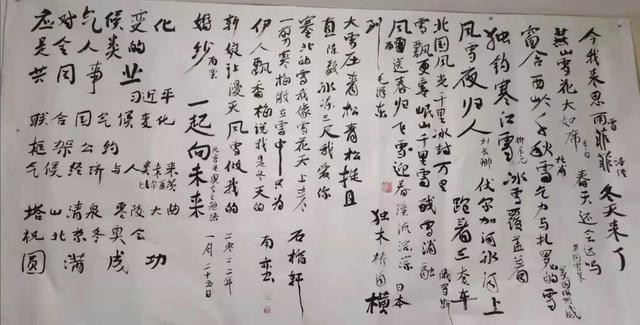 今我来思雨雪菲菲 诗经 冬天来了
燕山雪花大如席 李白 春天还会远吗
窗含西岭千秋雪 杜甫 乞力马扎罗的雪 美国海明威
独钓寒江雪 柳宗元 冰雪覆盖着
风雪夜归人 刘长卿 伏尔加河冰河上
跑着三套车 俄罗斯
北国风光千里冰封万里
雪飘更喜岷山千里雪 残雪消融
风雨送春归飞雪迎春 溪流淙淙 日本
到 毛泽东 独木桥自横
大雪压青松青松挺且
直 陈毅 冰冻三尺我爱你
塞北的雪我像雪花天上来
一剪寒梅傲立雪中只为
伊人飘香梅说我是冬天的
新娘让漫天风雪做我的
婚纱 一起向未来
北京冬奥会主题语
石榴轩
二零二二年
一月二十五日
应对气候变化
是全人类的
共同事业
习近平
联合国气候变化
框架公约
气候经济与人类未来
比尔盖茨
塔山清泉零陵大曲
祝北京冬奥会
圆满成功